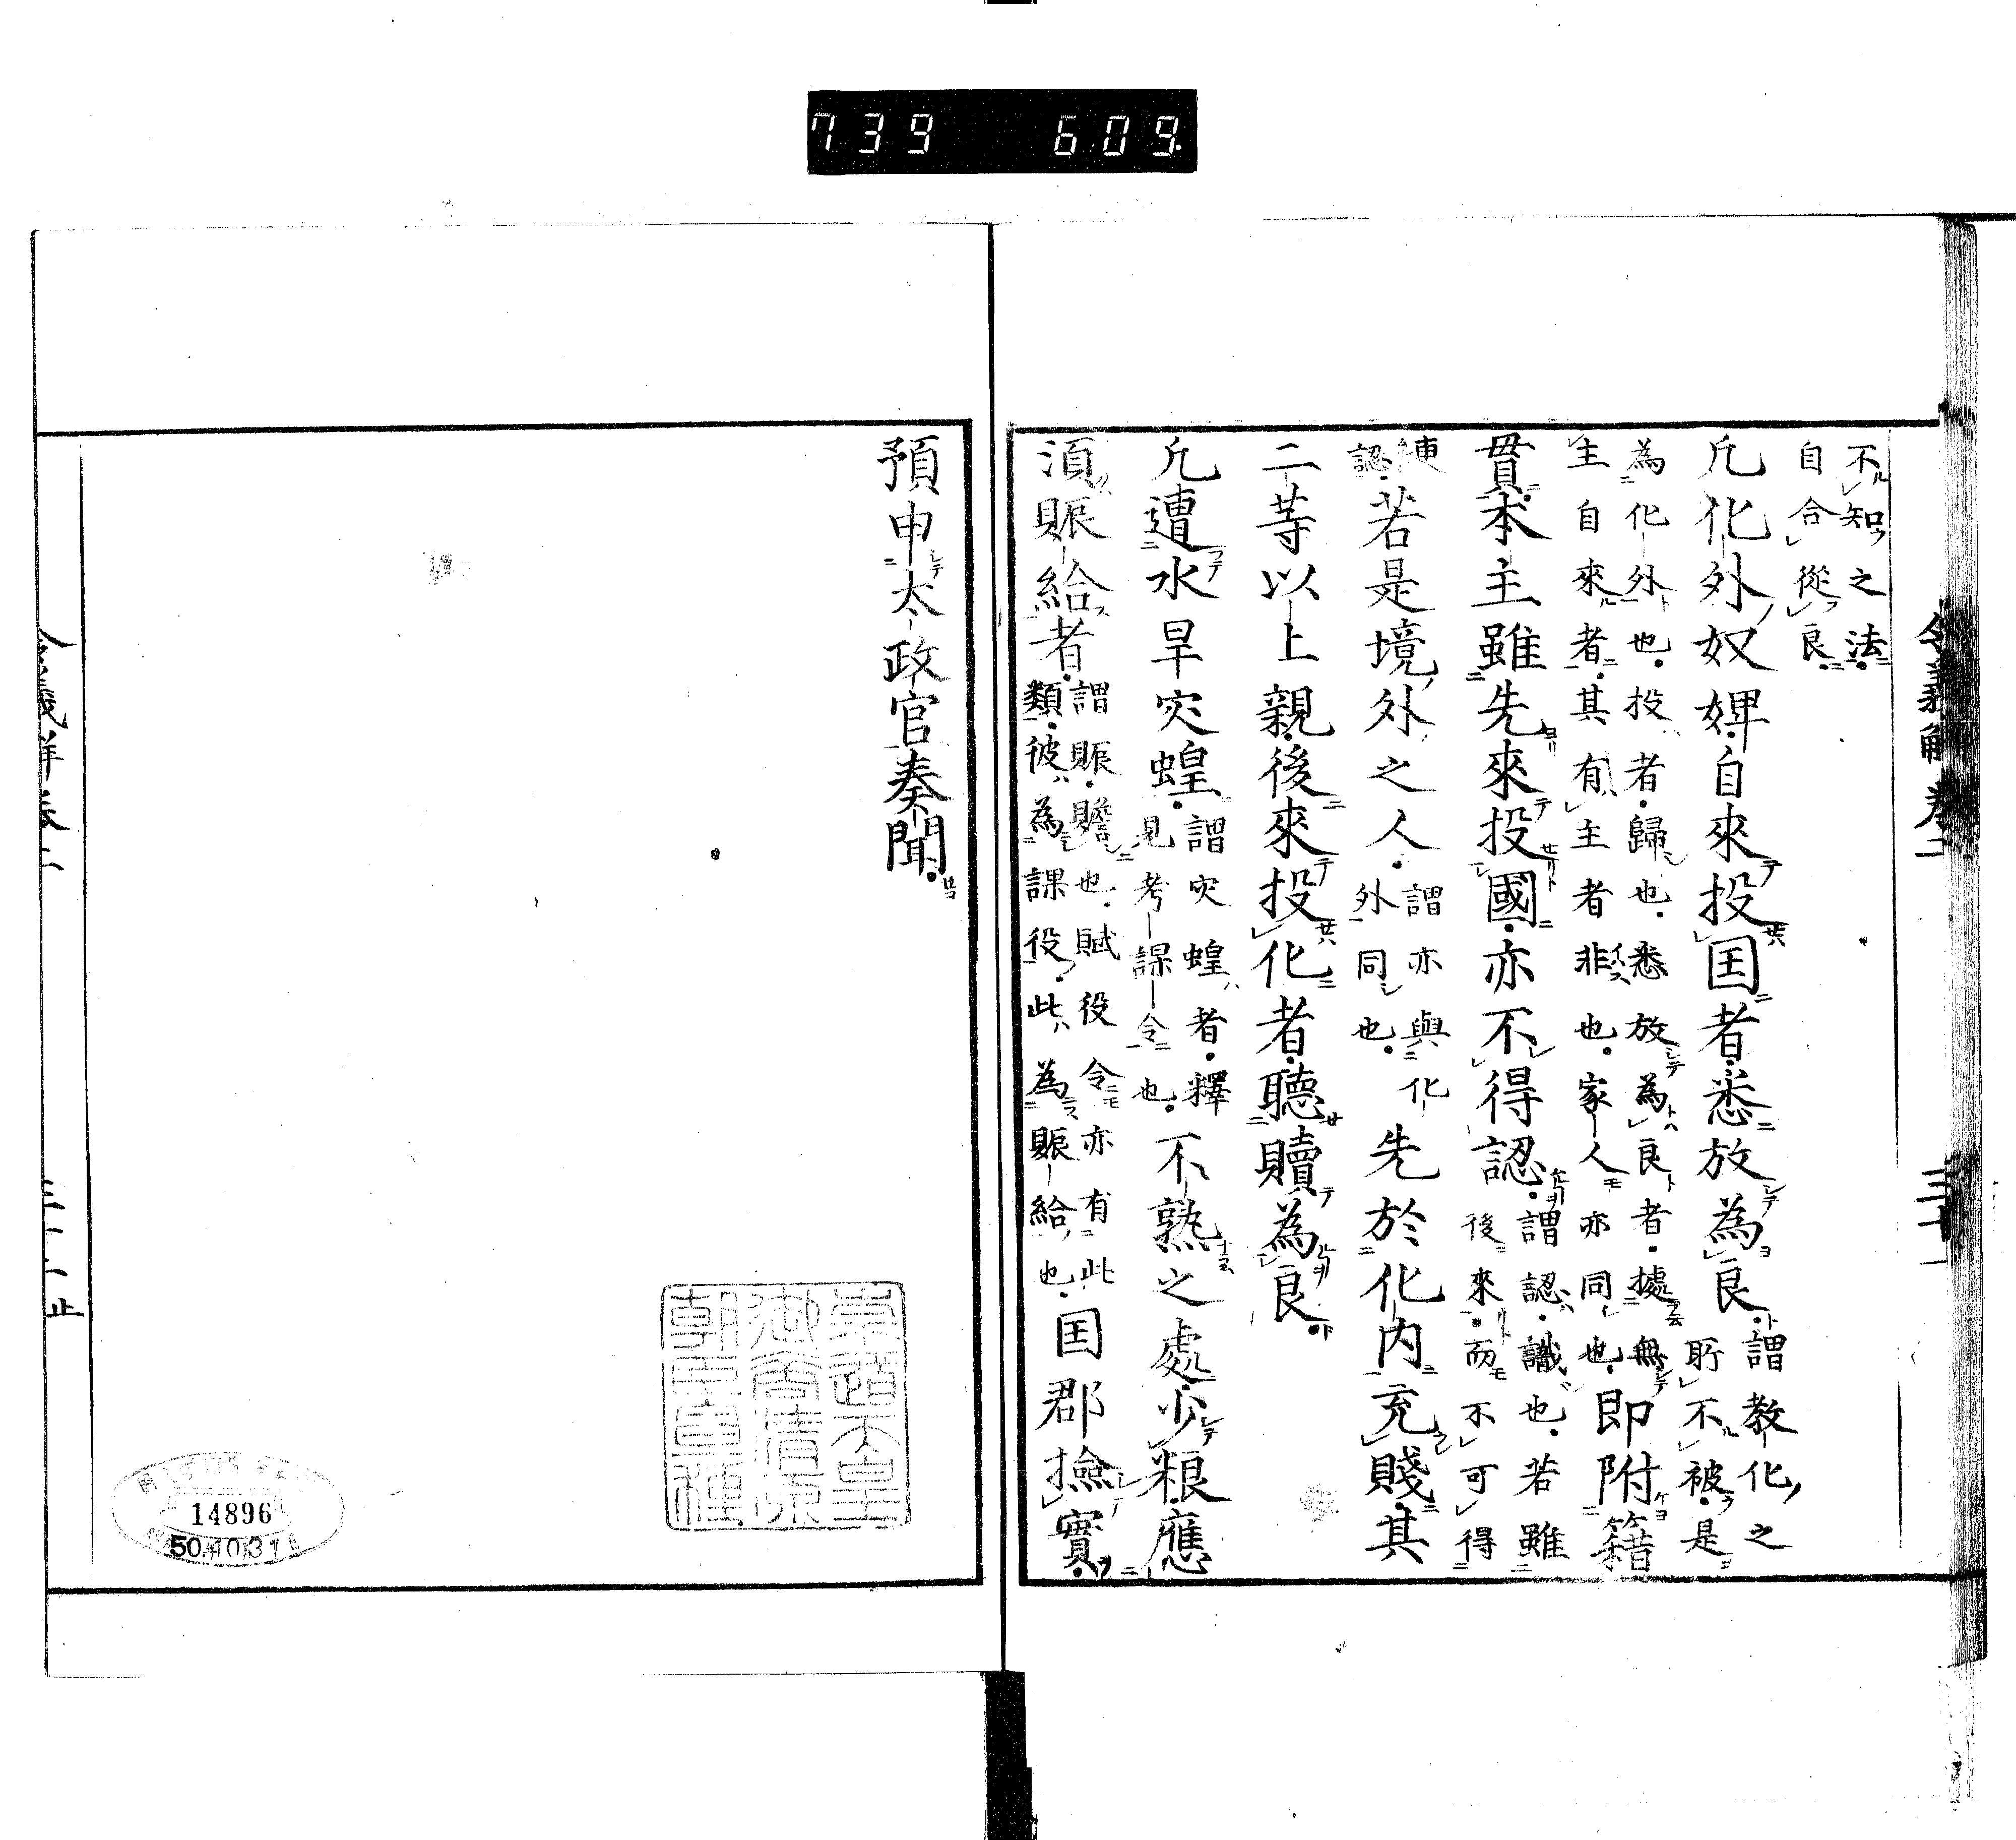 739 609.
令義解卷二
三十一
不知之法
自合從良
凡化外奴婢自來投国者悉放為良謂教化之
所不被是
為化外也投者歸也悉放為良者據無
主自來者其有主者非也家人亦同也即附籍
貫本主雖先來投國亦不得認謂認識也若雖
後來而不可得
更
認若是境外之人謂亦與化
外同也先於化内充賤其
二等以上親後來投化者聽贖為良
凡遭水旱灾蝗謂灾蝗者釋
見考課令也不熟之處少粮應
湏賑給者謂賑贍也賦役令亦有此
類彼為課役此為賑給也国郡撿實
預申太政官奏聞
14896
50.10.31